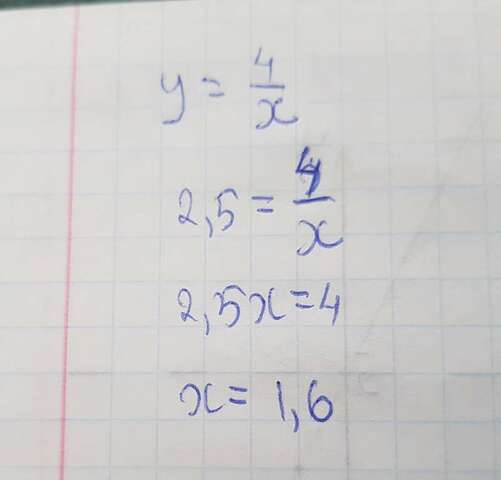 y = 4/x
2,5 = 4/x
2,5x = 4
x = 1,6